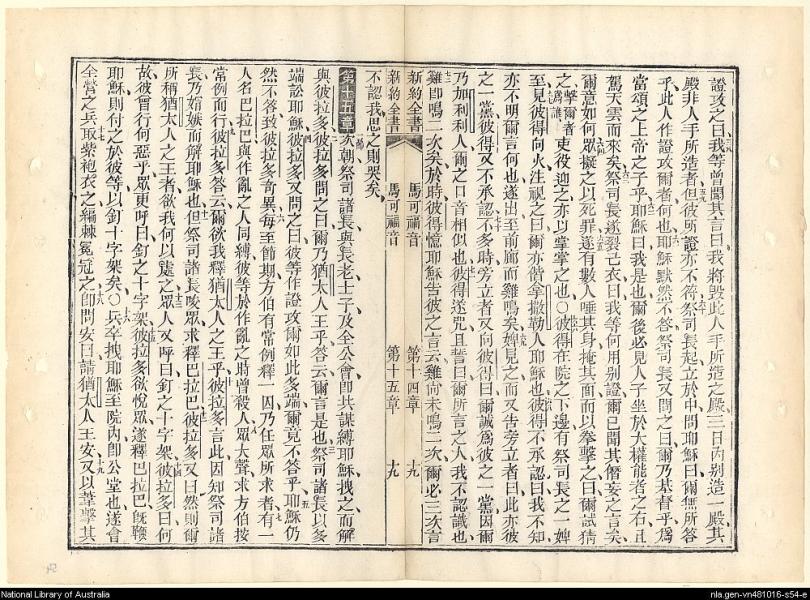 證攻之曰我等曾聞其言曰我將毀此人手所造之殿三日內别造一殿其
殿非人手所造者但彼所證亦不符祭司長起立於中問耶穌曰爾無所答
乎此人作證攻爾者何也耶穌默然不答祭司長又問之曰爾乃基督乎爲
當頌之上帝之子乎耶穌曰我是也爾後必見人子坐於大權能者之右且
駕天雲而來矣祭司長遂裂己衣曰我等何用别證爾已聞其僭妄之言矣
爾意如何眾擬之以死罪遂有數人唾其身掩其面而以拳擊之曰爾試猜
之擊爾者爲誰吏役迎之亦以掌掌之也〇彼得在院之下邊有祭司長之一婢
至見彼得向火注視之曰爾亦偕拿撒勒人耶穌也彼得不承認曰我不知
亦不明爾言何也遂出至前廊而雞鳴矣婢見之而又告旁立者曰此亦彼
之一黨彼得又不承認不多時旁立者又向彼得曰爾誠爲彼之一黨因爾
乃加利利人爾之口音相似也彼得遂咒且誓曰爾所言之人我不認識也
雞即鳴二次矣於時彼得憶耶穌吿彼之言云雞尚未鳴二次爾必三次言
新約全書 馬可福音 第十四章 十九
新約全書 馬可福音 第十五章 十九
不認我思之則哭矣
第十五章 次朝祭司諸長與長老士子及全公會即共謀縛耶穌拽之而解
與彼拉多彼拉多問之曰爾乃猶太人王乎答云爾言是也祭司諸長以多
端訟耶穌彼拉多又問之曰彼等作證攻爾如此多端爾竟不答乎耶穌仍
然不答致彼拉多奇異每至節期方伯有常例釋一囚乃任眾所求者有一
人名巴拉巴與作亂之人同縛彼等於作亂之時曾殺人眾大聲求方伯按
常例而行彼拉多答云爾欲我釋猶太人之王乎彼拉多言此因知祭司諸
長乃婧嫉而解耶穌也但祭司諸長唆眾求釋巴拉巴彼拉多又曰然則爾
所稱猶太人之王者欲我何以處之眾人又呼曰釘之十字架彼拉多曰何
故彼曾行何惡乎眾更呼曰釘之十字架彼拉多欲悅眾遂釋巴拉巴旣鞭
耶穌則付之於彼等以釘十字架矣〇兵卒拽耶穌至院內卽公堂也遂會
全營之兵取紫袍衣之編棘冕冠之卽問安曰請猶太人王安又以葦擊其
National Library of Australia
nla.gen-vn481016-s54-e